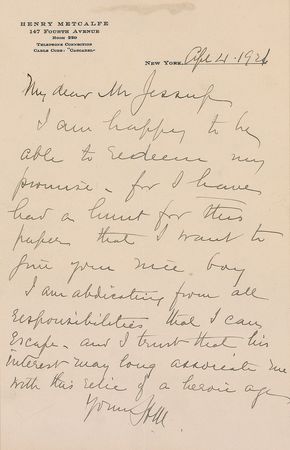 HENRY METCALFE
147 FOURTH AVENUE
ROOM 220
TELEPHONE CONNECTION
CABLE CODE: "CASCABEL"
NEW YORK, Apl 4. 1926
My dear Mr Jessup,
I am happy to be
able to redeem my
promise - for I have
had a hunt for this
paper that I want to
give your nice boy
I am abdicating from all
responsibilities that I can
escape - and I trust that his
interest may long associate me
with this relic of a heroic age
Yours HM